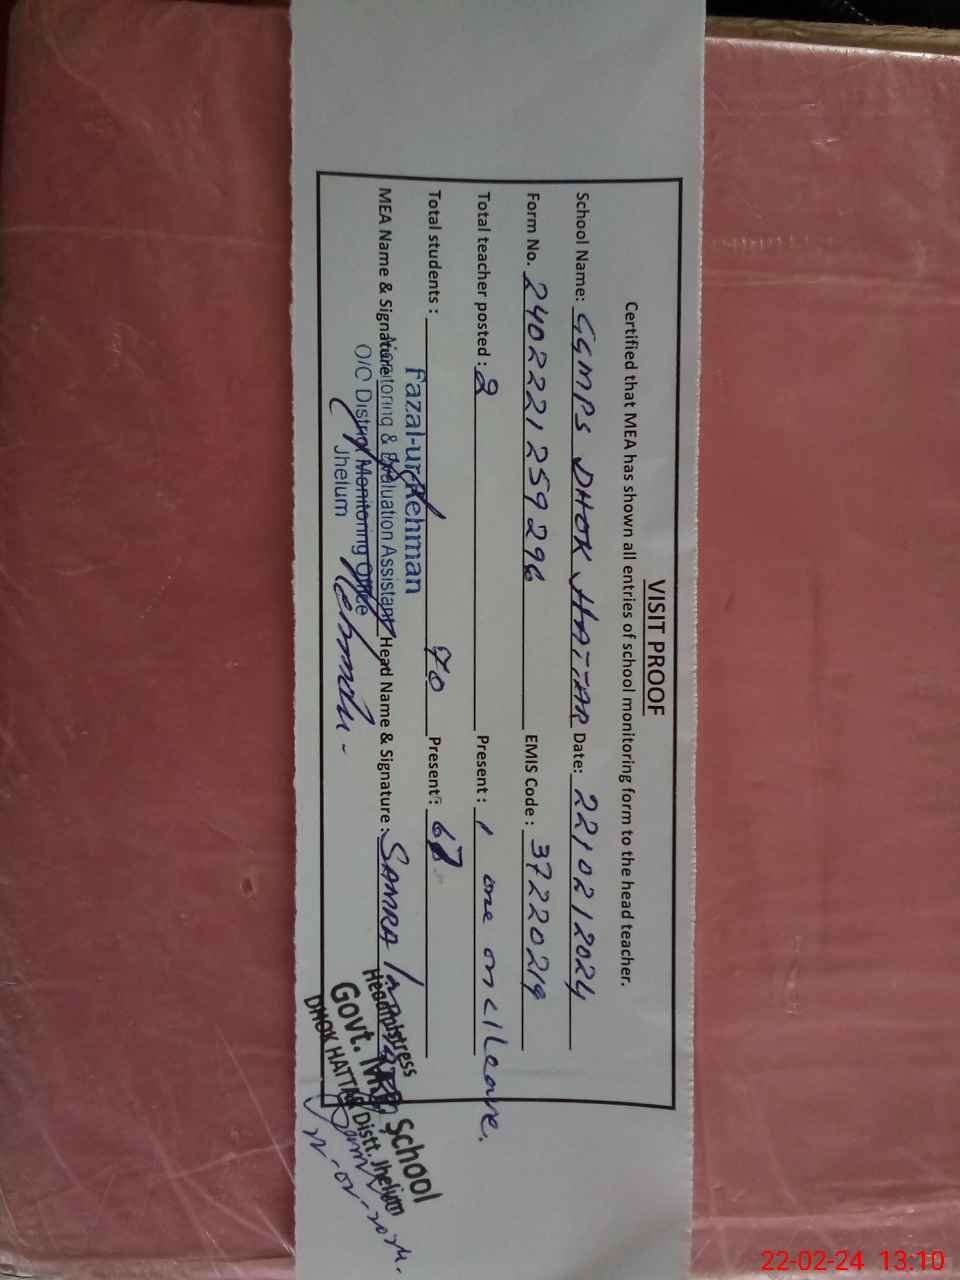 VISIT PROOF
Certified that MEA has shown all entries of school monitoring form to the head teacher.
School Name: GGMPS DHOK HATTAR Date: 22/02/2024
Form No. 2402221259296 EMIS Code: 37220219
Total teacher posted: 2 Present: 1 one on c/Leave.
Total students: 70 Present: 67
Fazal-ur-Rehman
MEA Name & Signature Head Name & Signature: SAMRA
Monitoring & Evaluation Assistant
O/C District Monitoring Office
Jhelum
Headmistress
Govt. School
DHOK HATTAR Distt. Jhelum
22-02-2024.
22-02-24 13:10